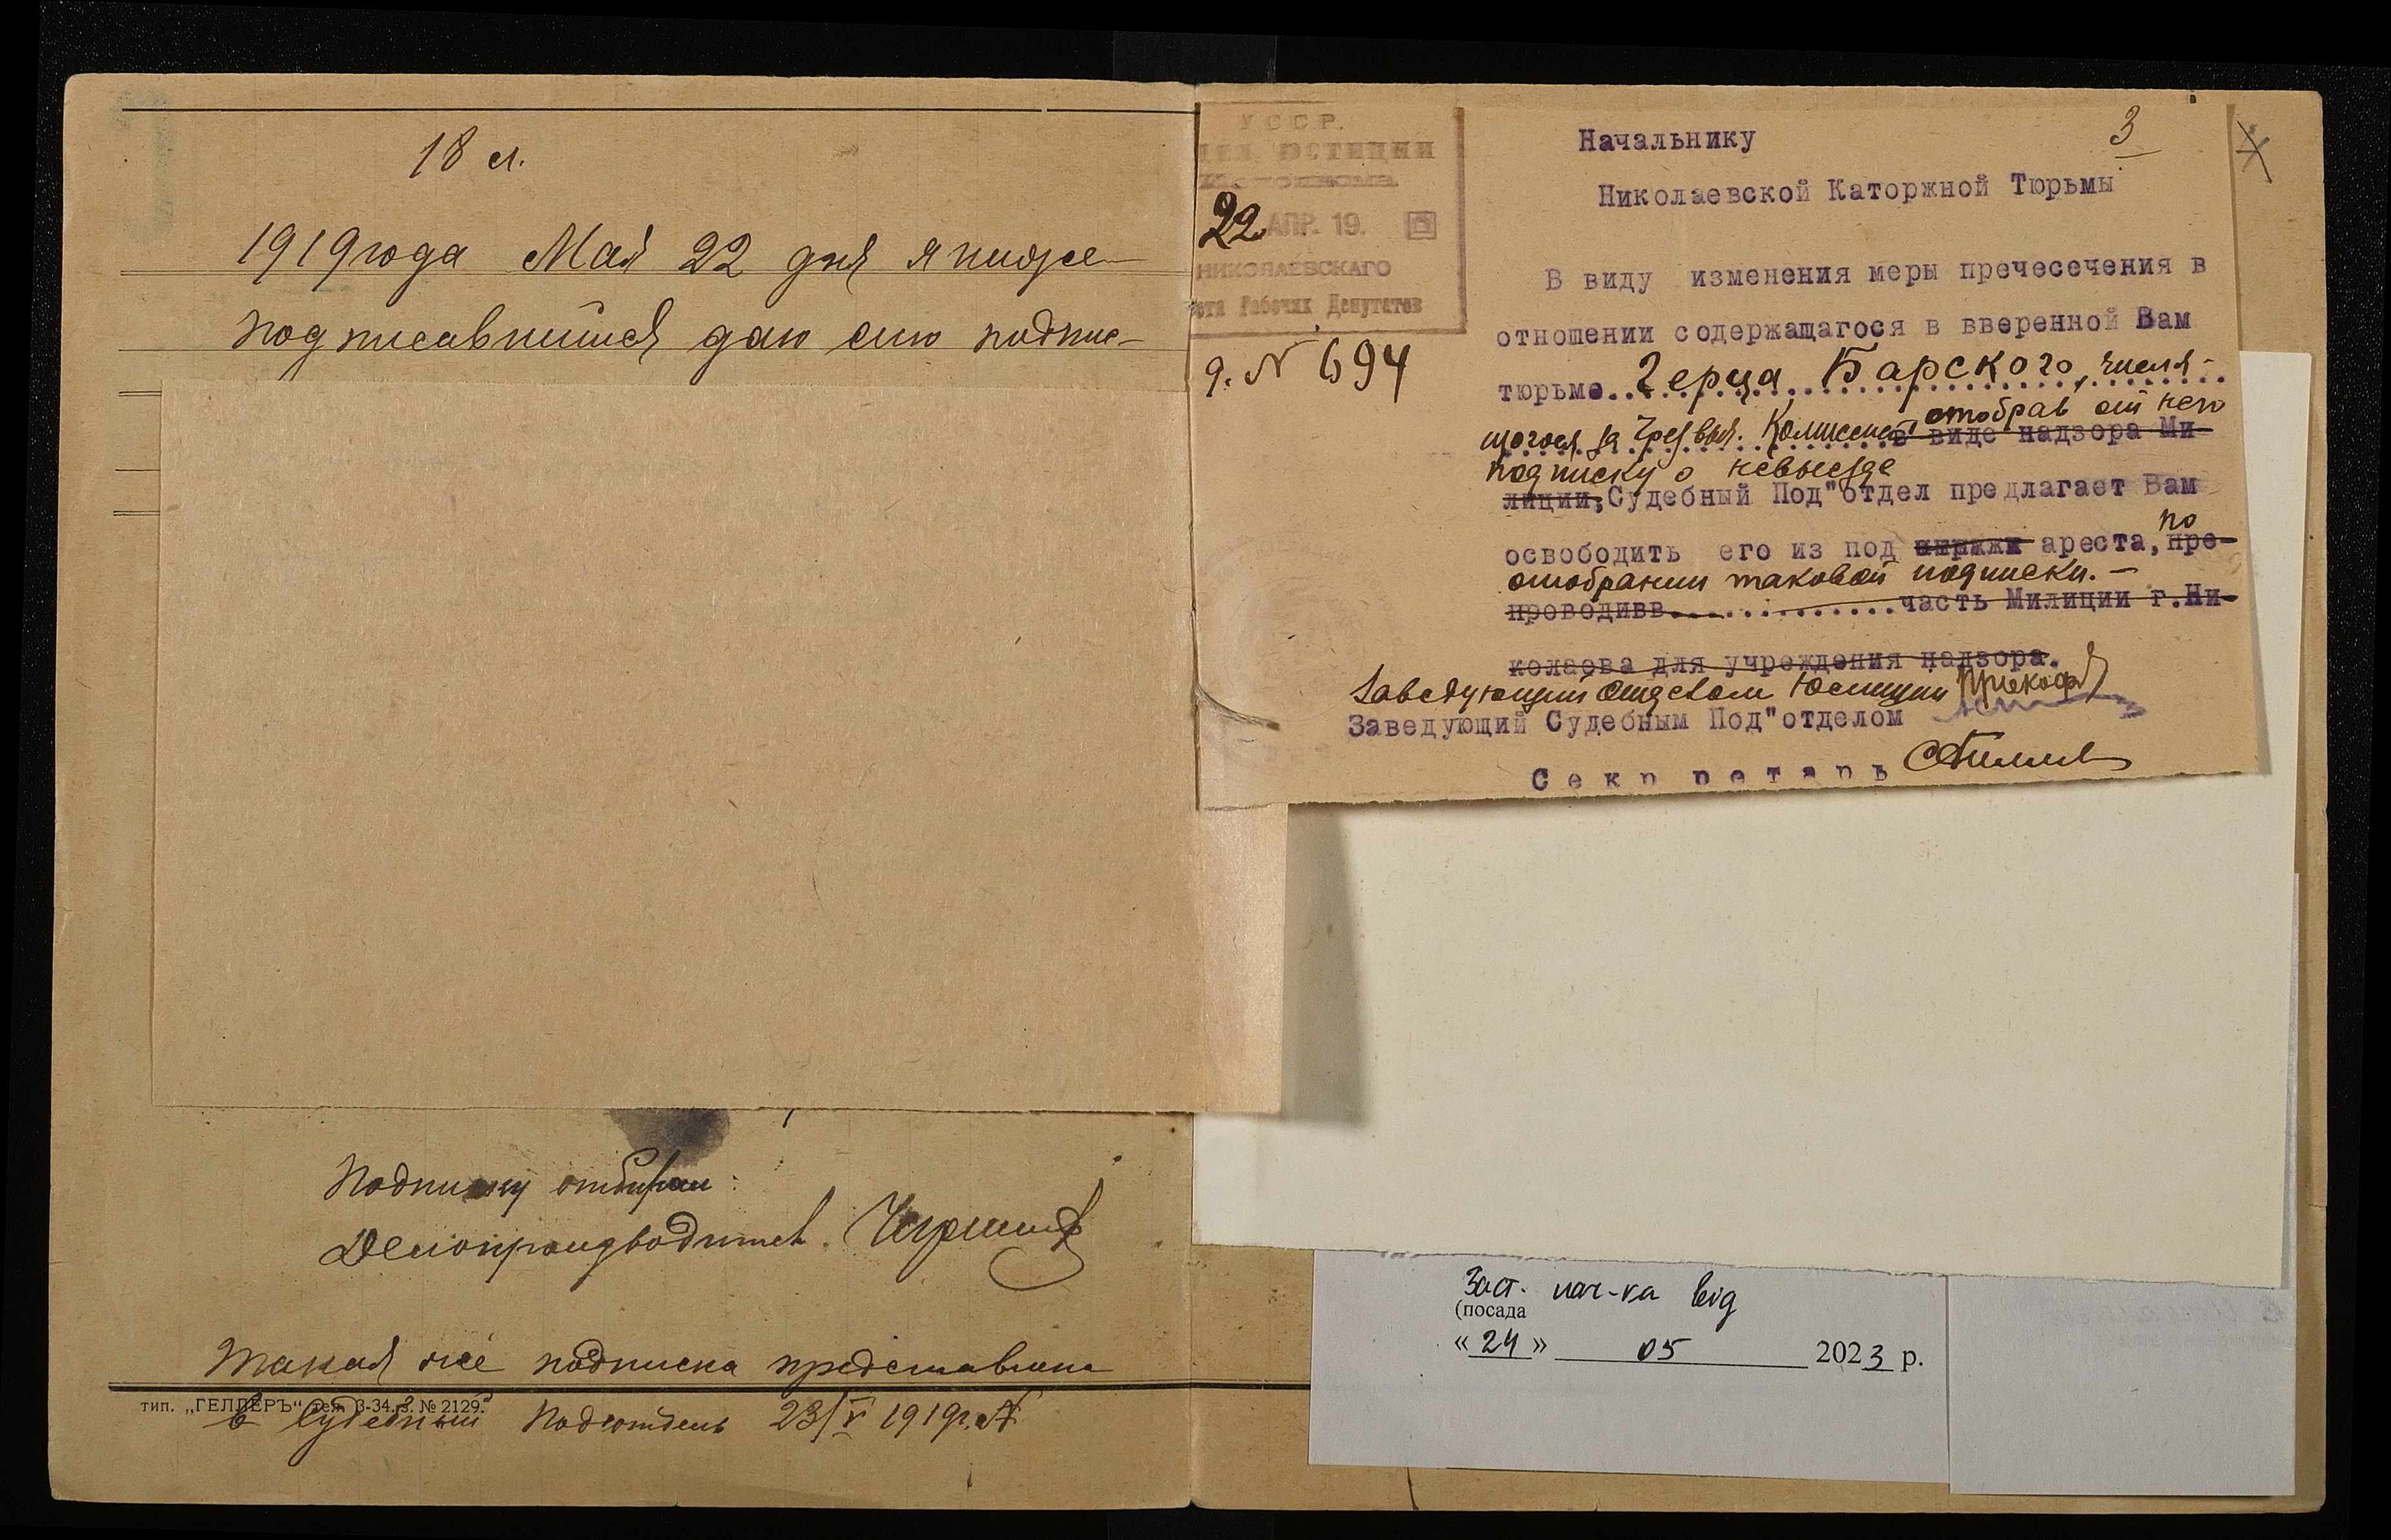 18 л.
1919 года Мая 22 дня я ниже-
подписавшийся даю сию подпис-
Подписку отбирал:
Делопроизводитель
Такая же подписка представлена
тип. „ГЕЛЛЕРЪ“ тел. 3-34. З. № 2129.
в Судебный Подъотдель 23/V 1919 г.
У С С Р.
ЮСТИЦИИ
22 АПР. 19.
НИКОЛАЕВСКАГО
Рабочих Депутатов
д. N 694
3
Начальнику
Николаевской Каторжной Тюрьмы
В виду изменения меры пречесечения в
отношении содержащагося в вверенной Вам
тюрьме Герца Барского, числя-
щогося за Чрезвыч. Комиссией, отобрав от него
в виде надзора Ми-
подписку о невыезде
лиции, Судебный Под"отдел предлагает Вам
по
освободить его из под стражи ареста, пре-
отобрании таковой подписки. –
проводивв..............часть Милиции г.Ни-
колаева для учреждения надзора.
Заведующий Отделом Юстиции
Заведующий Судебным Под"отделом
Секр ретарь
Заст. нач-ка від
(посада
« 24 » 05 2023 р.